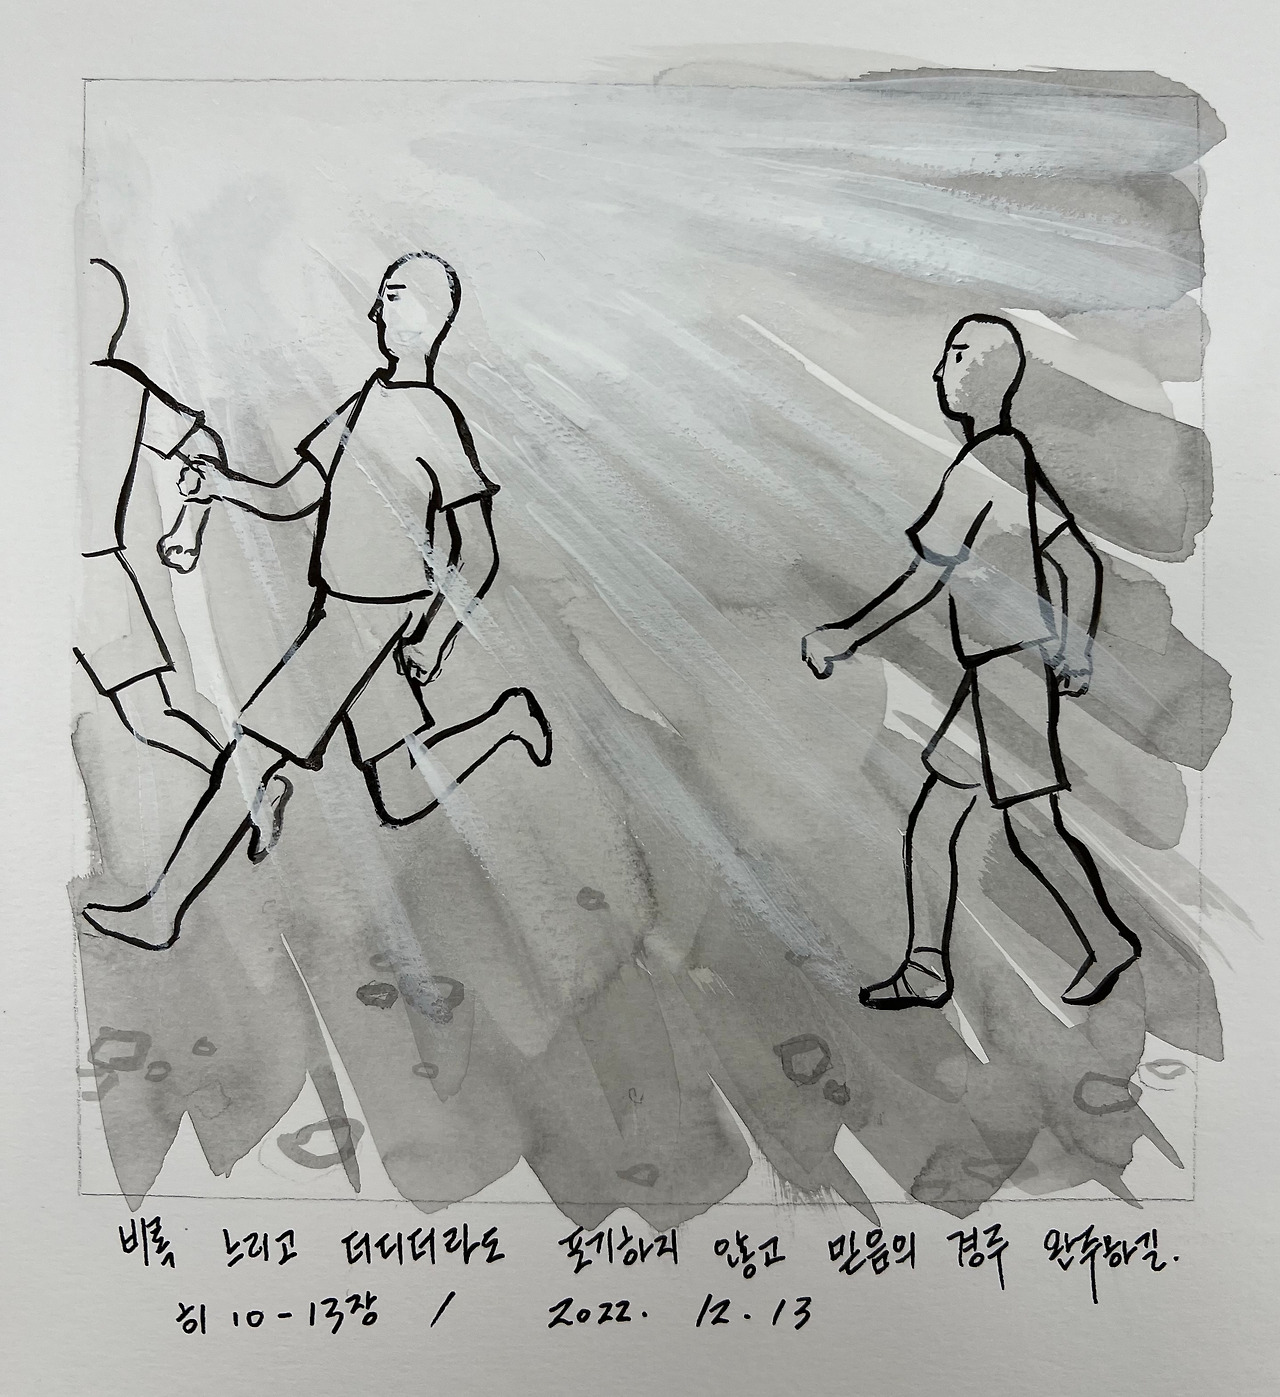 비록 느리고 더디더라도 포기하지 않고 믿음의 경주 완주하길.
히 10-13장 / 2022. 12. 13